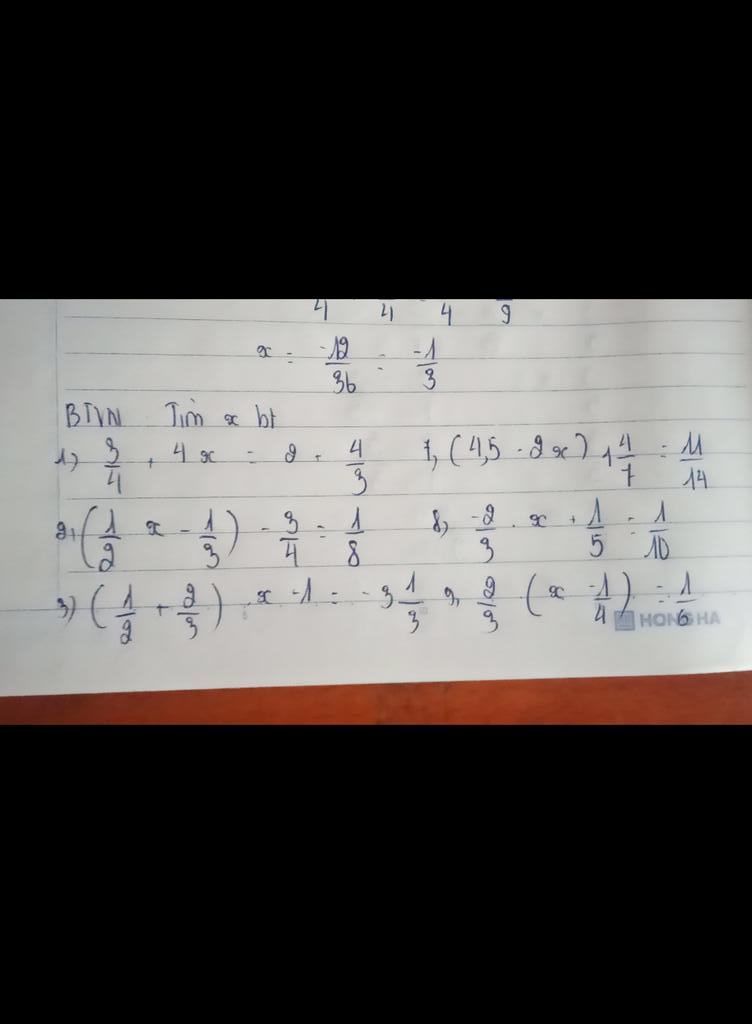 4 4 4 9
x = -12/36 = -1/3
BTVN Tìm x bt
1) 3/4 + 4x = 2 + 4/3 7, (4,5 - 2x) 1 4/7 = 11/14
2, (1/2 x - 1/3) - 3/4 = 1/8 8, -2/3 . x + 1/5 = 1/10
3) (1/2 + 2/3) . x - 1 = -3 1/3 9, 2/3 (x - 1/4) = 1/6
HONG HA